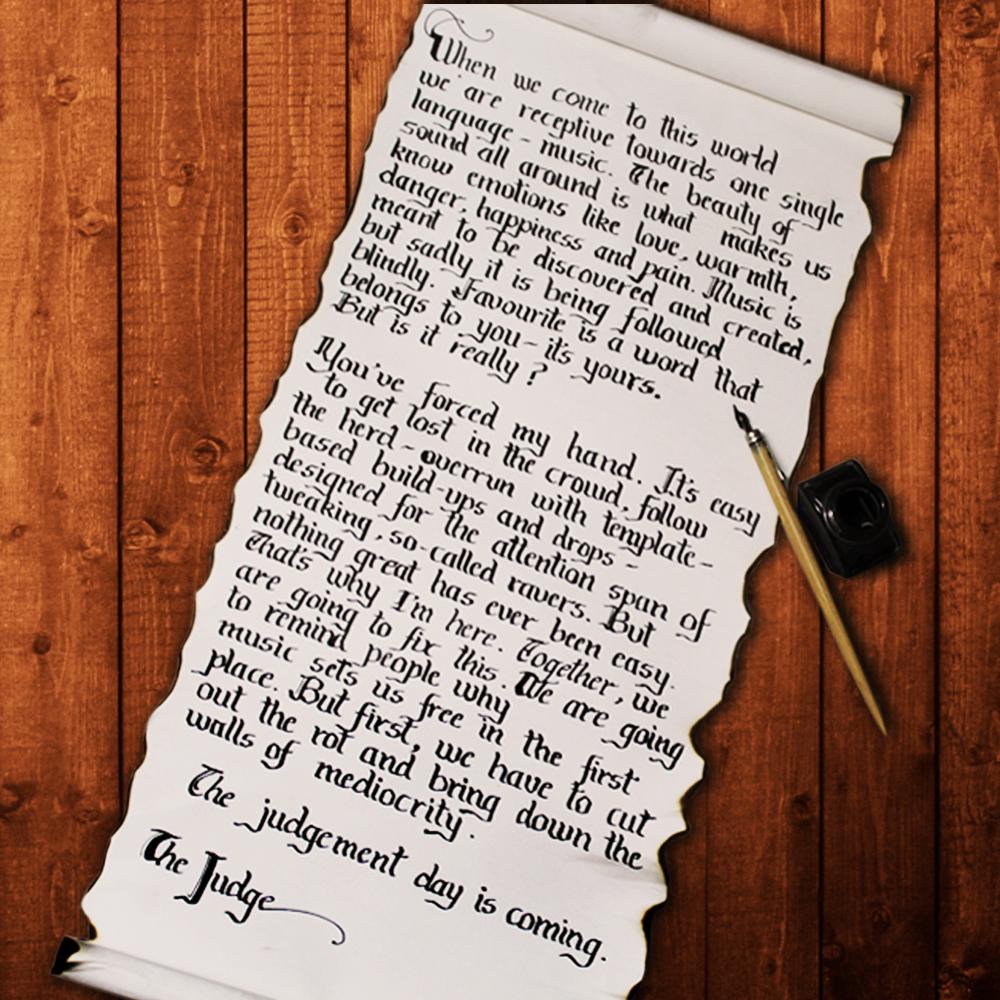 When we come to this world
we are receptive towards one single
language - music. The beauty of
sound all around is what makes us
know emotions like love, warmth,
danger, happiness and pain. Music is
meant to be discovered and created,
but sadly it is being followed
blindly. Favourite is a word that
belongs to you - it's yours.
But is it really ?
You've forced my hand. It's easy
to get lost in the crowd, follow
the herd - overrun with template-
based build-ups and drops -
designed for the attention span of
tweaking, so-called ravers. But
nothing great has ever been easy.
That's why I'm here. Together, we
are going to fix this. We are going
to remind people why
music sets us free in the first
place. But first, we have to cut
out the rot and bring down the
walls of mediocrity.
The judgement day is coming.
The Judge